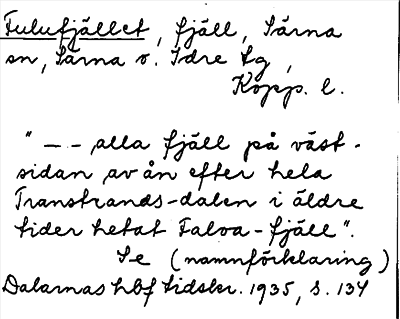 Fulufjället, fjäll, Särna
sn, Särna o. Idre tg,
Kopp. l.
" – – alla fjäll på väst-
sidan av ån efter hela
Transtrands-dalen i äldre
tider hetat Faloa-fjäll".
Se (namnförklaring)
Dalarnas hbf tidskr. 1935, s. 134